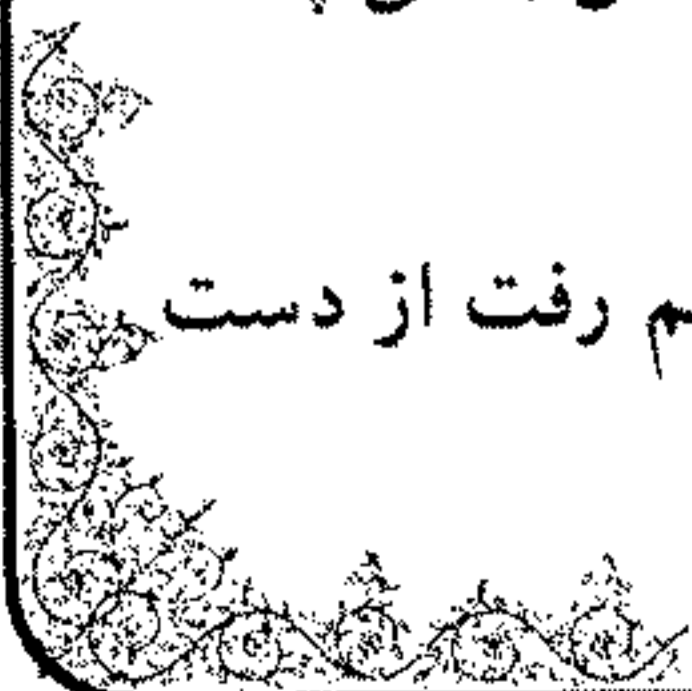 رفت از دست